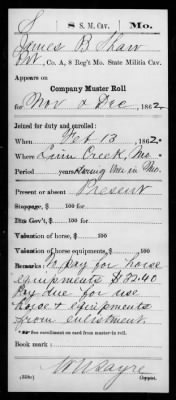 S 8 S. M. Cav. Mo.
James B Shaw
Pvt, Co. A, 8 Reg't Mo. State Militia Cav.
Appears on
Company Muster Roll
for Nov & Dec, 1862.
Joined for duty and enrolled:
When Feb 13, 1862.
Where Linn Creek, Mo.
Period years during War in Mo.
Present or absent Present
Stoppage, $ 100 for
Due Gov't, $ 100 for
Valuation of horse, $ 100
Valuation of horse equipments, $ 100
Remarks: pay for horse
equipments $ 72.40
Pay due for use
horse & equipments
from enlistment.
*See enrollment card from master-in roll.
Book mark:
Sayre
(358c) Copyist.